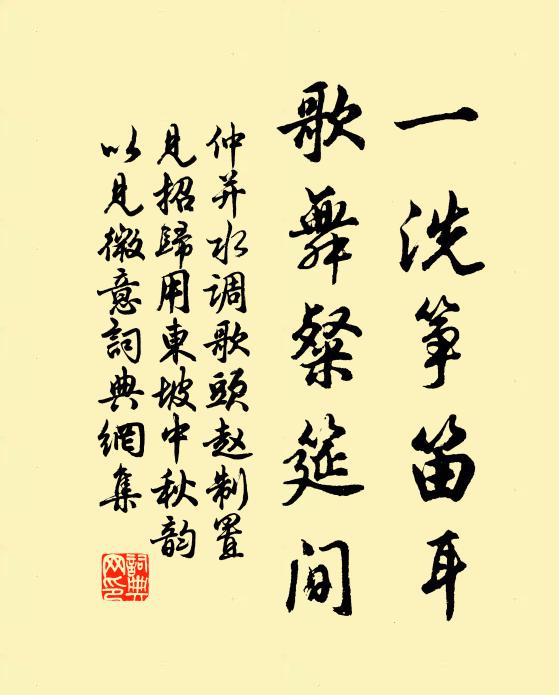 一洗筝笛耳
歌舞粲筵间
仲并水调歌頭赵制置
見招歸用東坡中秋韵
以見微意詞典網集
詞典网印